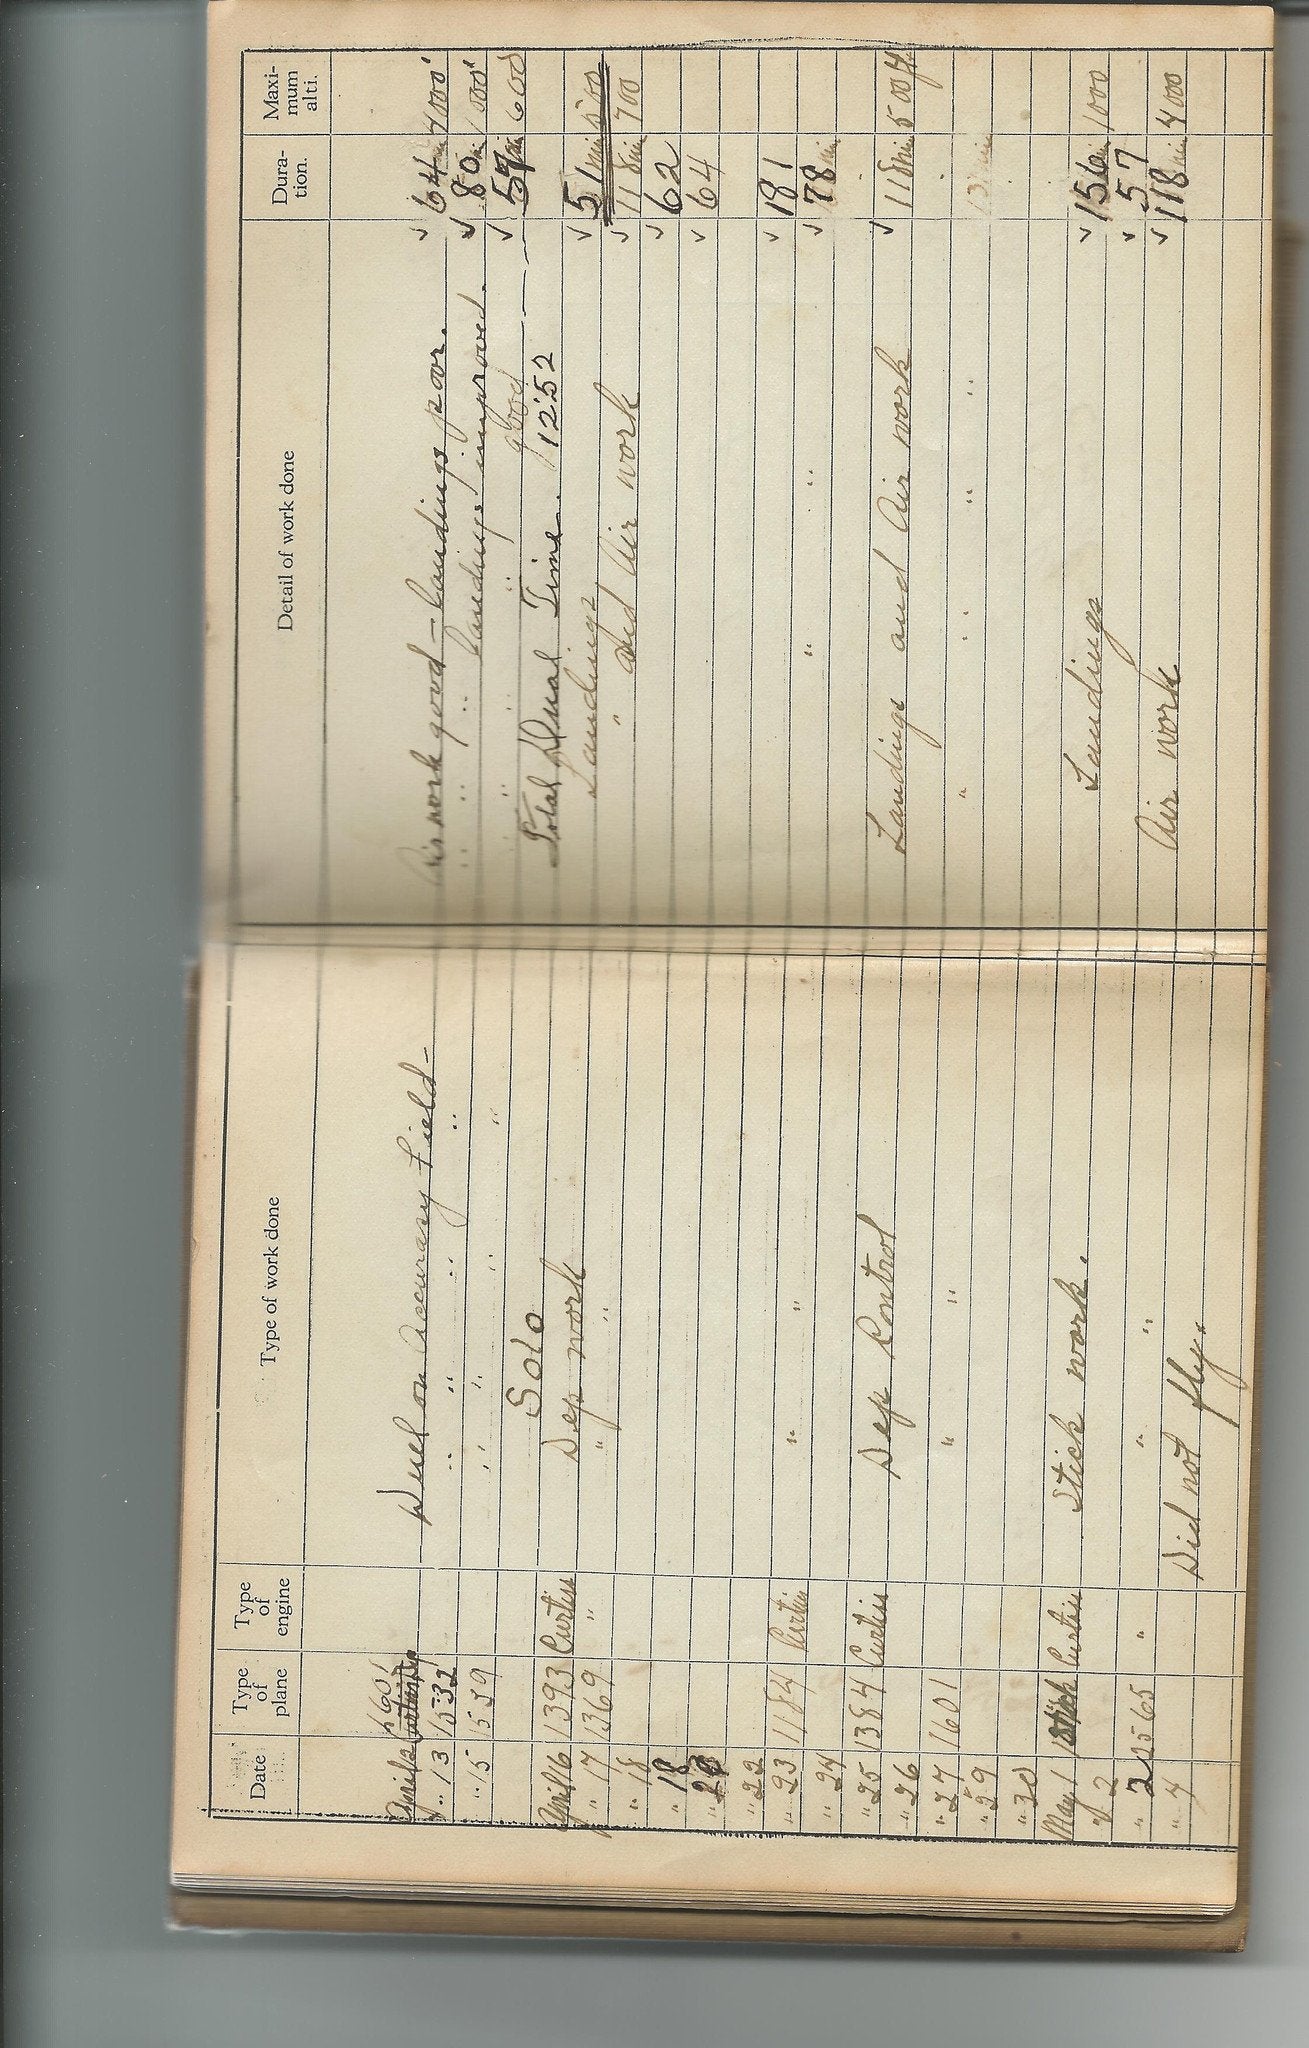 Date Type of plane Type of engine Type of work done Detail of work done Dura-tion. Maxi-mum alti.
1601
April 12 Curtiss Duel on Accuracy Field- Air work good - landings poor. ✓ 64 min 4000'
" 13 1532 " " " " " " " landings improved. ✓ 80 min 1000'
" 15 1539 " " " " " " " good ✓ min 600
Solo Total Dual Time. 12:52
April 16 1393 Curtiss Dep work Landings ✓ 51 min 500
" 17 1369 " " " " and Air work ✓ 118 min 700
" 18 ✓ 62
" 18 ✓ 64
" 20
" 22 ✓ 181
" 23 1184 Curtiss " " " " ✓ 78 min
" 24
" 25 1384 Curtiss Dep Control Landings and Air work ✓ 118 min 500 ft
" 26
" 27 1601 " " " " " " min
" 29
" 30
May 1 Curtiss Stick work. Landings ✓ 156 min 1000
" 2 ✓ 57
" 2 2565 " " " Air work ✓ 118 min 4000
" 4 Did not fly.